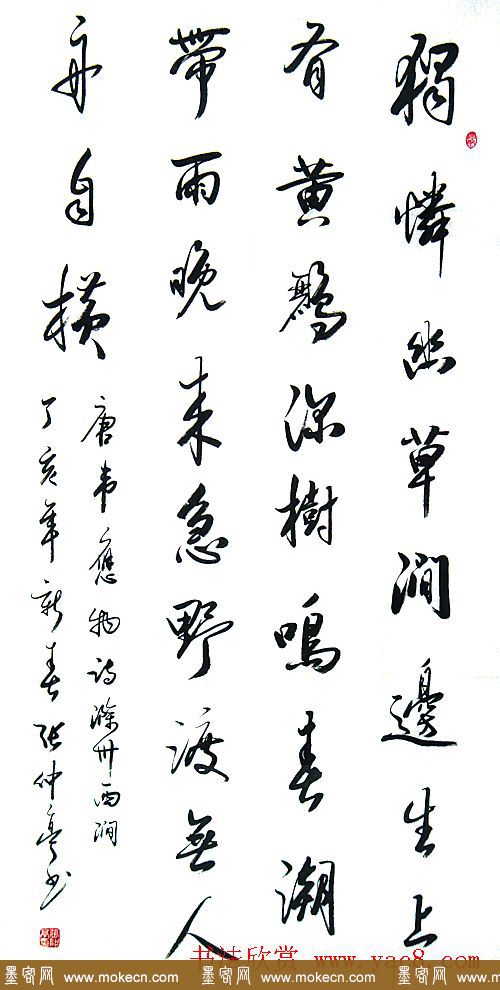 獨憐幽草澗邊生上
有黄鸝深樹鳴春潮
帶雨晚来急野渡無人
舟自横
唐韋應物詩滁州西澗
丁亥年新春張仲亭書
书法欣赏 www.yac8.com
墨客网 www.mokecn.com 墨客网 www.mokecn.com 墨客网 www.mokecn.com